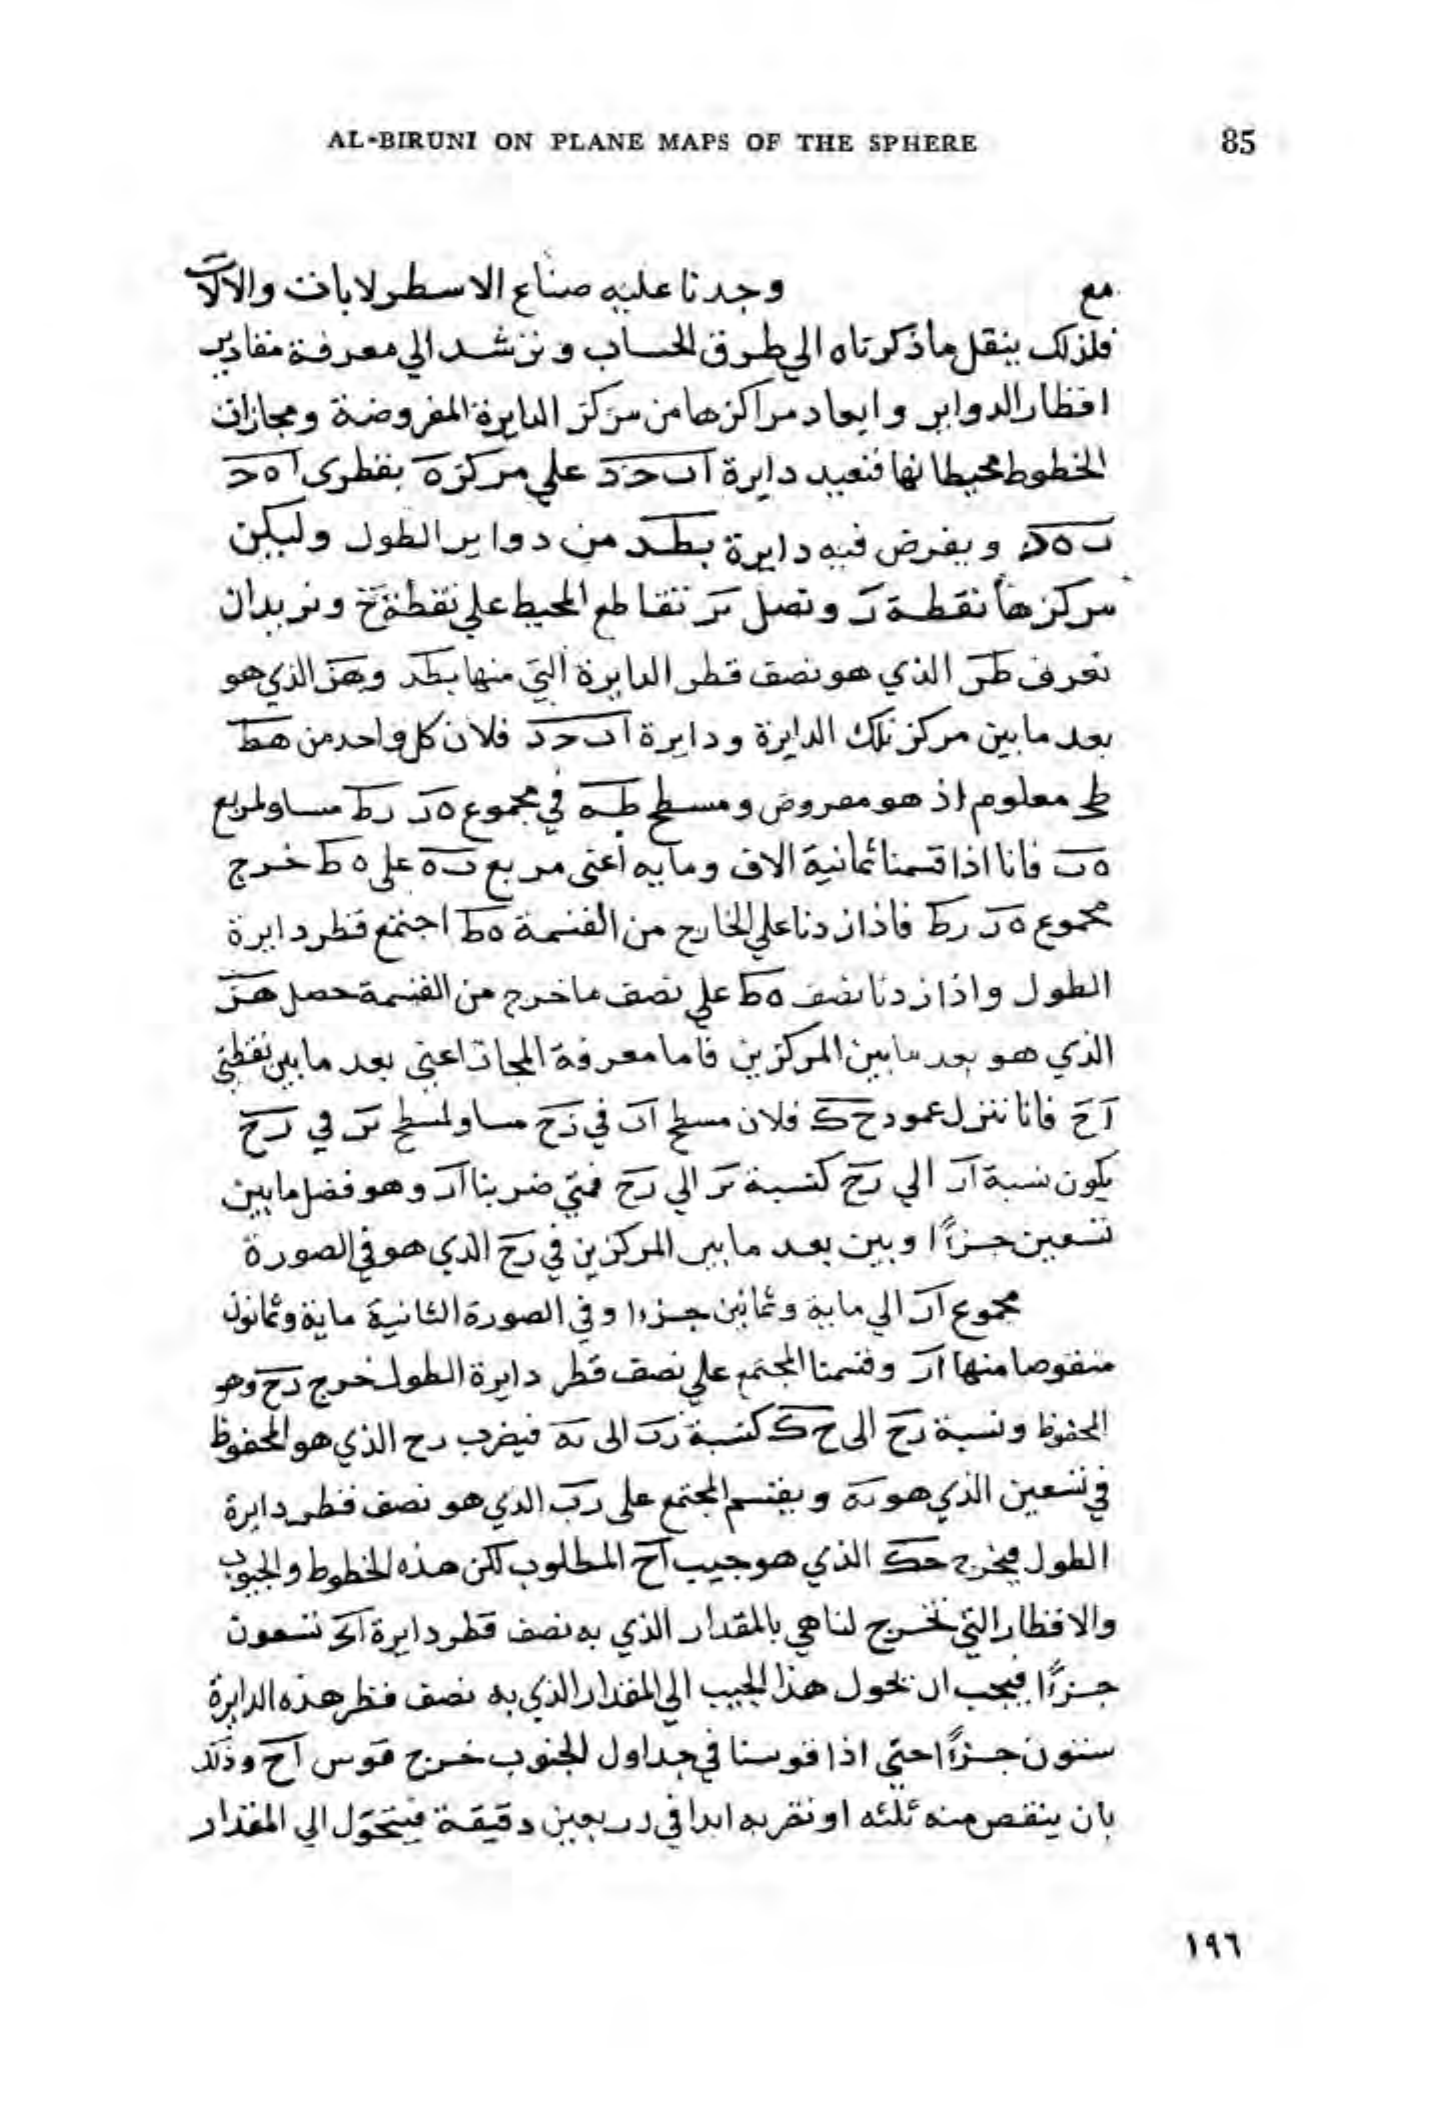 AL-BIRUNI ON PLANE MAPS OF THE SPHERE 85
مع وجدنا عليه صناع الاسطرلابات والآلات
فلذلك ينقل ما ذكرناه الي طرق الحساب و نرشد الي معرفة مقادير
اقطار الدواير وابعاد مراكزها من مركز الدايرة المفروضة ومجازات
الخطوط محيطاتها فنعيد دايرة اب حد علي مركز ه بقطري ا ه ح
ب ه د ويفرض فيه دايرة بطد من دواير الطول وليكن
مركزها نقطة ر ونصل تقاطع المحيط علي نقطة ح ونريد ان
نعرف طر الذي هو نصف قطر الدايرة التي منها بطد وهز الذي هو
بعد ما بين مركز تلك الدايرة ودايرة اب حد فلان كل واحد من هط
معلوم اذ هو مفروض ومسطح طه في مجموع ه ر رط مساو لمربع
ه ب فانا اذا قسمنا ثمانية الاف ومايه أعني مربع ب ه علي ه ط خرج
مجموع ه ر رط فاذا زدنا علي الخارج من القسمة ه ط اجتمع قطر دايرة
الطول واذا زدنا نصف ه ط علي نصف ما خرج من القسمة حصل هز
الذي هو بعد ما بين المركزين فاما معرفة المجاز اعني بعد ما بين نقطتي
اح فانا ننزل عمود ح ك فلان مسطح ار في زح مساو لمسطح في رح
يكون نسبة ار الي رح كنسبة الي رح فمتي ضربنا ار وهو فضل ما بين
تسعين جزءًا وبين بعد ما بين المركزين في رح الذي هو في الصورة
مجموع ار الي ماية وثمانين جزءا وفي الصورة الثانية ماية وثمانون
منقوصا منها ار وقسمنا المجتمع علي نصف قطر دايرة الطول خرج رح وهو
المحفوظ ونسبة رح الى ح ك كنسبة رب الى به فيضرب رح الذي هو المحفوظ
في تسعين الذي هو به ويقسم المجتمع على رب الذي هو نصف قطر دايرة
الطول فيخرج حك الذي هو جيب اح المطلوب لكن هذه الخطوط والجيوب
والاقطار التي تخرج لنا هي بالمقدار الذي به نصف قطر دايرة تسعون
جزءًا فيجب ان نحول هذا الجيب الي المقدار الذي به نصف قطر هذه الدايرة
ستون جزءًا حتي اذا قوسنا في جداول الجيوب خرج قوس اح وذلك
بان ينقص منه ثلثه او نضربه ابدا في دقيقة فيتحوّل الي المقدار
١٩٦